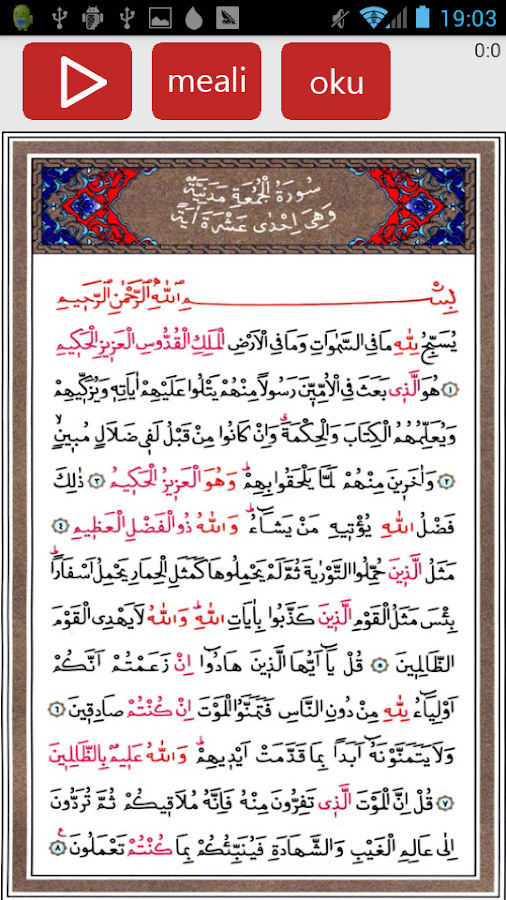 19:03
meali
oku
0:0
سُورَةُ الْجُمُعَةِ مَدَنِيَّةٌ
وَهِىَ اِحْدٰى عَشْرَةَ اٰيَةً
بِسْــــــــمِ اللّٰهِ الرَّحْمٰنِ الرَّحٖيمِ
يُسَبِّحُ لِلّٰهِ مَا فِى السَّمٰوَاتِ وَمَا فِى الْاَرْضِ الْمَلِكِ الْقُدُّوسِ الْعَزٖيزِ الْحَكٖيمِ
﴿١﴾ هُوَ الَّذٖى بَعَثَ فِى الْاُمِّيّٖنَ رَسُولاً مِنْهُمْ يَتْلُوا عَلَيْهِمْ اٰيَاتِهٖ وَيُزَكّٖيهِمْ
وَيُعَلِّمُهُمُ الْكِتَابَ وَالْحِكْمَةَۗ وَاِنْ كَانُوا مِنْ قَبْلُ لَفٖى ضَلَالٍ مُبٖينٍۙ
﴿٢﴾ وَاٰخَرٖينَ مِنْهُمْ لَمَّا يَلْحَقُوا بِهِمْۜ وَهُوَ الْعَزٖيزُ الْحَكٖيمُ ﴿٣﴾ ذٰلِكَ
فَضْلُ اللّٰهِ يُؤْتٖيهِ مَنْ يَشَٓاءُۜ وَاللّٰهُ ذُو الْفَضْلِ الْعَظٖيمِ ﴿٤﴾
مَثَلُ الَّذٖينَ حُمِّلُوا التَّوْرٰيةَ ثُمَّ لَمْ يَحْمِلُوهَا كَمَثَلِ الْحِمَارِ يَحْمِلُ اَسْفَارًاۜ
بِئْسَ مَثَلُ الْقَوْمِ الَّذٖينَ كَذَّبُوا بِاٰيَاتِ اللّٰهِۜ وَاللّٰهُ لَا يَهْدِى الْقَوْمَ
الظَّالِمٖينَ ﴿٥﴾ قُلْ يَٓا اَيُّهَا الَّذٖينَ هَادُٓوا اِنْ زَعَمْتُمْ اَنَّكُمْ
اَوْلِيَٓاءُ لِلّٰهِ مِنْ دُونِ النَّاسِ فَتَمَنَّوُا الْمَوْتَ اِنْ كُنْتُمْ صَادِقٖينَ ﴿٦﴾
وَلَا يَتَمَنَّوْنَهُٓ اَبَدًا بِمَا قَدَّمَتْ اَيْدٖيهِمْۜ وَاللّٰهُ عَلٖيمٌ بِالظَّالِمٖينَ
﴿٧﴾ قُلْ اِنَّ الْمَوْتَ الَّذٖى تَفِرُّونَ مِنْهُ فَاِنَّهُ مُلَاقٖيكُمْ ثُمَّ تُرَدُّونَ
اِلٰى عَالِمِ الْغَيْبِ وَالشَّهَادَةِ فَيُنَبِّئُكُمْ بِمَا كُنْتُمْ تَعْمَلُونَ ﴿٨﴾